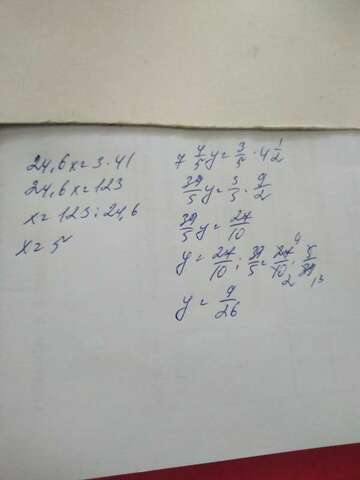 24,6x = 3 · 41
24,6x = 123
x = 123 : 24,6
x = 5
7 4/5 y = 3/5 · 4 1/2
39/5 y = 3/5 · 9/2
39/5 y = 27/10
y = 27/10 : 39/5 = 27/10 · 5/39 9 2 13
y = 9/26